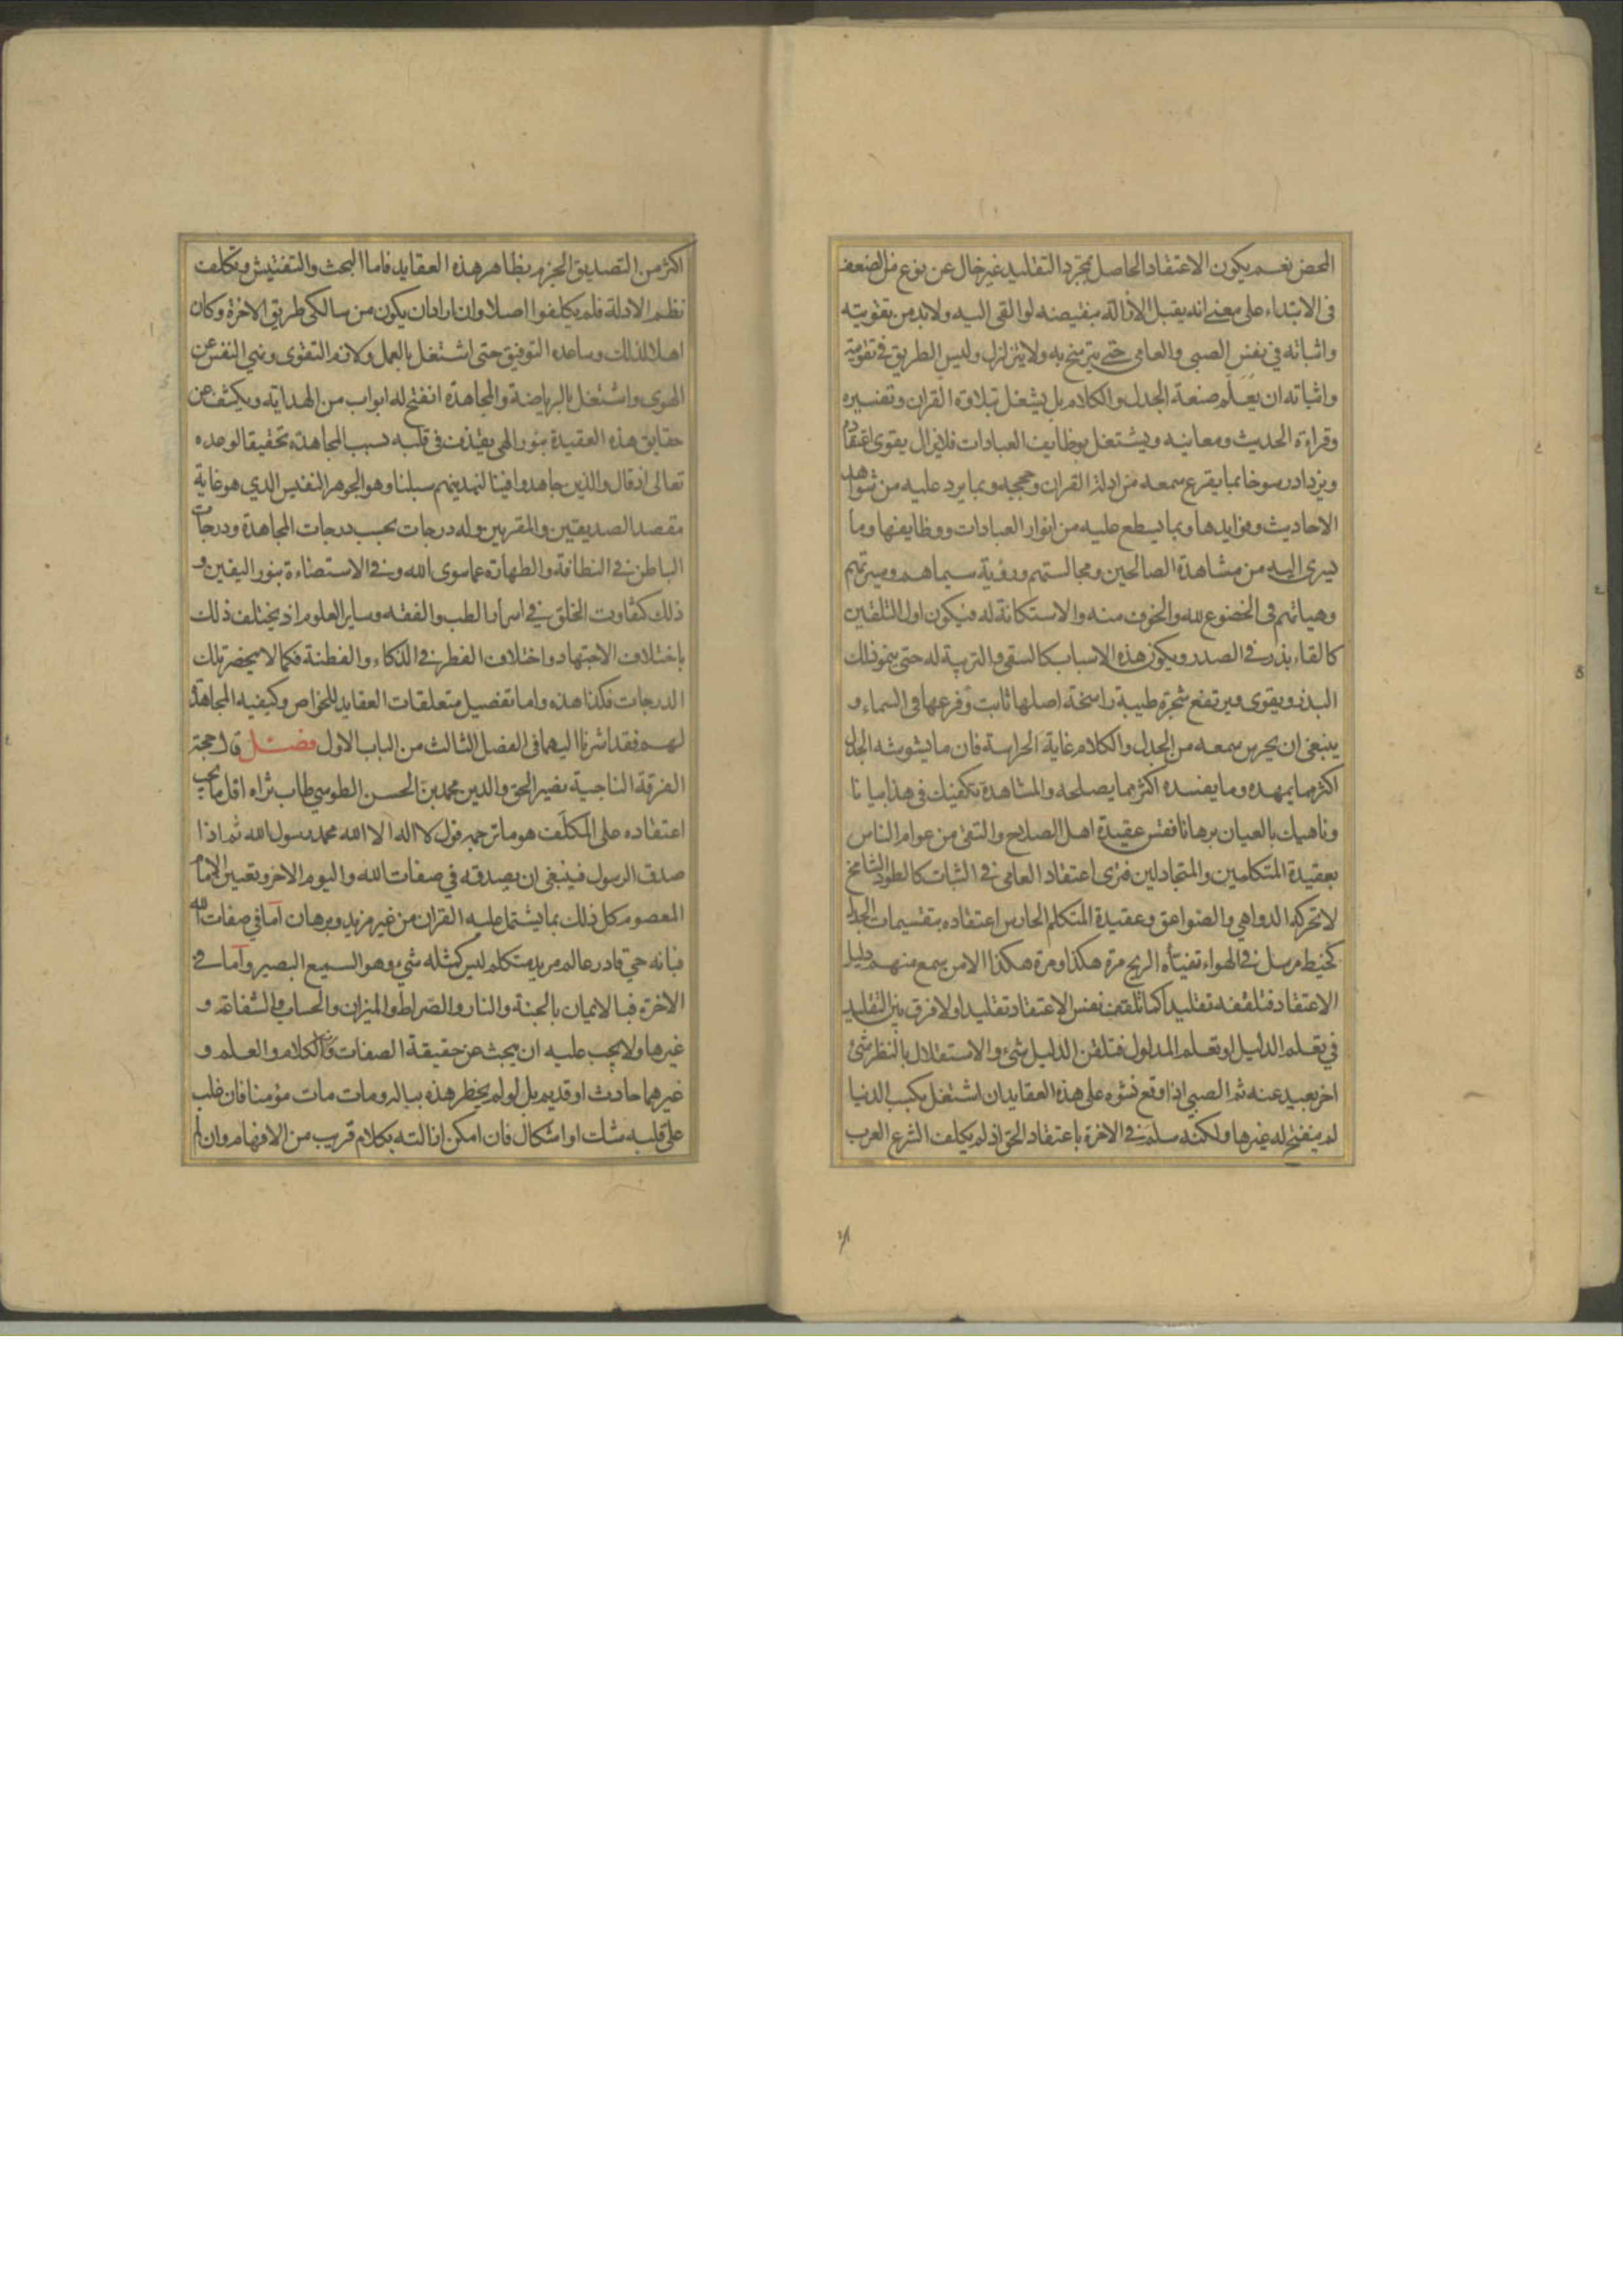 المحض نعم يكون الاعتقاد الحاصل بمجرد التقليد غير خال عن نوع من الضعف
فى الابتداء على معنى انه يقبل الازالة بنقيضه لو القى اليه ولا بد من تقويته
واثباته في نفس الصبى والعامى حتى يترسخ به ولا يتزلزل وليس الطريق فى تقويته
واثباته ان يعلم صنعة الجدل والكلام بل يشغل بتلاوة القران وتفسيره
وقراءة الحديث ومعانيه ويشتغل بوظايف العبادات فلايزال يقوى اعتقاده
ويزداد رسوخا بما يقرع سمعه من ادلة القران وحججه وبما يرد عليه من شواهد
الاحاديث وفوايدها وبما يسطع عليه من انوار العبادات ووظايفها وما
يسرى اليه من مشاهدة الصالحين ومجالستهم ورؤية سيماهم وسيرتهم
وهياتهم فى الخضوع لله والخوف منه والاستكانة له فيكون اول التلقين
كالقاء بذر فى الصدر ويكون هذه الاسباب كالسقى والتربية له حتى ينمو ذلك
البذر ويقوى ويرتفع شجرة طيبة راسخة اصلها ثابت وفرعها فى السماء و
ينبغى ان يحرس سمعه من الجدل والكلام غاية الحراسة فان ما يشوشه الجدل
اكثر مما يمهده وما يفسده اكثر مما يصلحه والمشاهدة تكفيك فى هذا بيانا
وناهيك بالعيان برهانا فقس عقيدة اهل الصلاح والتقى من عوام الناس
بعقيدة المتكلمين والمتجادلين فترى اعتقاد العامى فى الثبات كالطود الشامخ
لا تحركه الدواهي والصواعق وعقيدة المتكلم الحارس اعتقاده بتقسيمات الجدل
كخيط مرسل فى الهواء تفيئه الريح مرة هكذا ومرة هكذا الا من سمع منهم دليل
الاعتقاد فتلقفه تقليدا كما تلقف نفس الاعتقاد تقليدا ولا فرق بين التقليد
في تعلم الدليل او تعلم المدلول فتلقن الدليل شئ والاستقلال بالنظر شئ
اخر بعيد عنه ثم الصبى اذا وقع نشوه على هذه العقايد ان اشتغل بكسب الدنيا
لم ينفتح له غيرها ولكنه سلم فى الاخرة باعتقاد الحق اذ لم يكلف الشرع العرب
اكثر من التصديق الجزم بظاهر هذه العقايد فاما البحث والتفتيش وتكلف
نظم الادلة فلم يكلفوا اصلا وان اراد ان يكون من سالكى طريق الاخرة وكان
اهلا لذلك وساعده التوفيق حتى اشتغل بالعمل ولازم التقوى ونهى النفس عن
الهوى واشتغل بالرياضة والمجاهدة انفتح له ابواب من الهداية ويكشف عن
حقايق هذه العقيدة بنور الهى يقذف فى قلبه بسبب المجاهدة تحقيقا لوعده
تعالى اذ قال والذين جاهدوا فينا لنهدينهم سبلنا وهو الجوهر النفيس الذي هو غاية
مقصد الصديقين والمقربين وله درجات بحسب درجات المجاهدة ودرجات
الباطن فى النظافة والطهارة عما سوى الله وفى الاستضاءة بنور اليقين و
ذلك كتفاوت الخلق في اسرار الطب والفقه وساير العلوم اذ يختلف ذلك
باختلاف الاجتهاد واختلاف الفطر فى الذكاء والفطنة فكما لا يحضر تلك
الدرجات فكذا هذه واما تفصيل متعلقات العقايد للخواص وكيفيه المجاهدة
لهم فقد اشرنا اليهما فى الفصل الثالث من الباب الاول فصل قال حجة
الفرقة الناجية نصير الحق والدين محمد بن الحسن الطوسي طاب ثراه اقل ما يجب
اعتقاده على المكلف هو ما ترجمه قول لا اله الا الله محمد رسول الله ثم اذا
صدق الرسول فينبغى ان يصدقه في صفات الله واليوم الاخر وتعيين الامام
المعصوم كل ذلك بما يشتمل عليه القران من غير مزيد وبرهان اما في صفات الله
فبانه حي قادر عالم مريد متكلم ليس كمثله شيء وهو السميع البصير واما فى
الاخرة فبالايمان بالجنة والنار والصراط والميزان والحساب والشفاعة و
غيرها ولا يجب عليه ان يبحث عن حقيقة الصفات وان الكلام والعلم و
غيرهما حادث او قديم بل لو لم يخطر هذه بباله ومات مات مؤمنا فان غلب
على قلبه شك او اشكال فان امكن ازالته بكلام قريب من الافهام وان لم